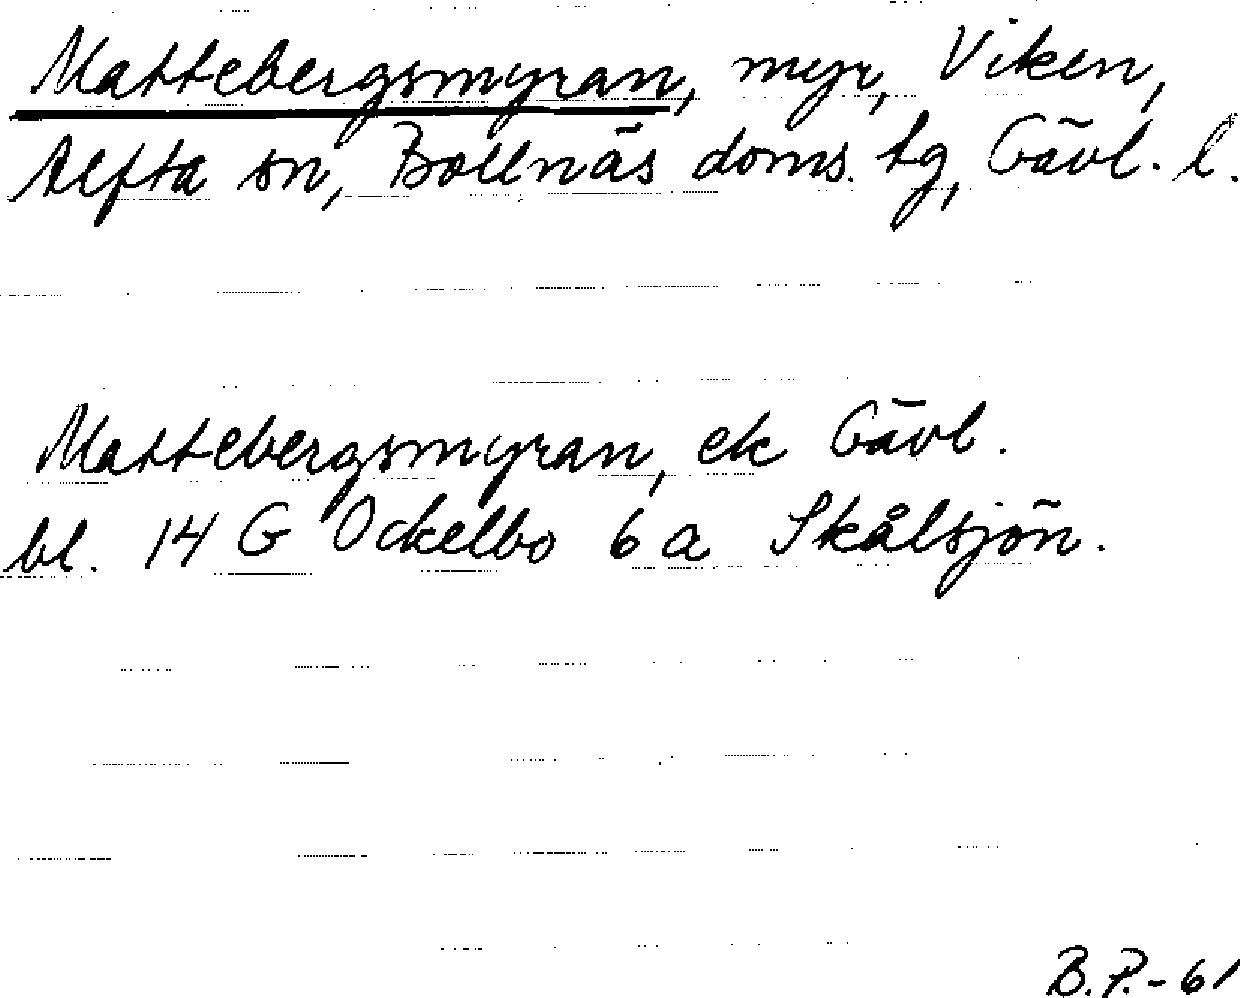 Mattebergsmyran, myr, Viken,
Alfta sn, Bollnäs doms. tg, Gävl. l.
Mattebergsmyran, ek Gävl.
bl. 14 G Ockelbo 6 a Skålsjön.
B.P.-61